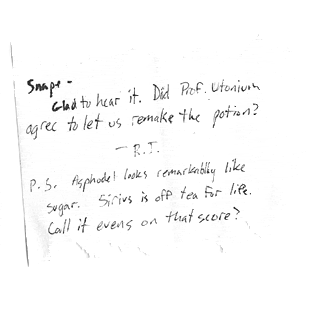 Snape -
Glad to hear it. Did Prof. Utonium
agree to let us remake the potion?
- R.J.
P.S. Asphodel looks remarkably like
sugar. Sirius is off tea for life.
Call it evens on that score?